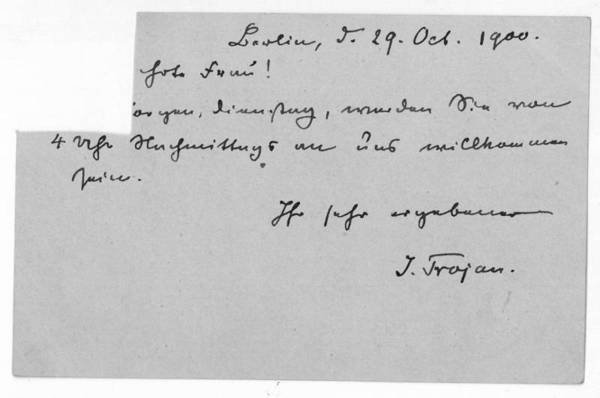 Berlin, d. 29. Oct. 1900.
hrte Frau!
orgen, Dienstag, werden Sie von
4 Uhr Nachmittags an uns willkommen
sein.
Ihr sehr ergebener
J. Trojan.